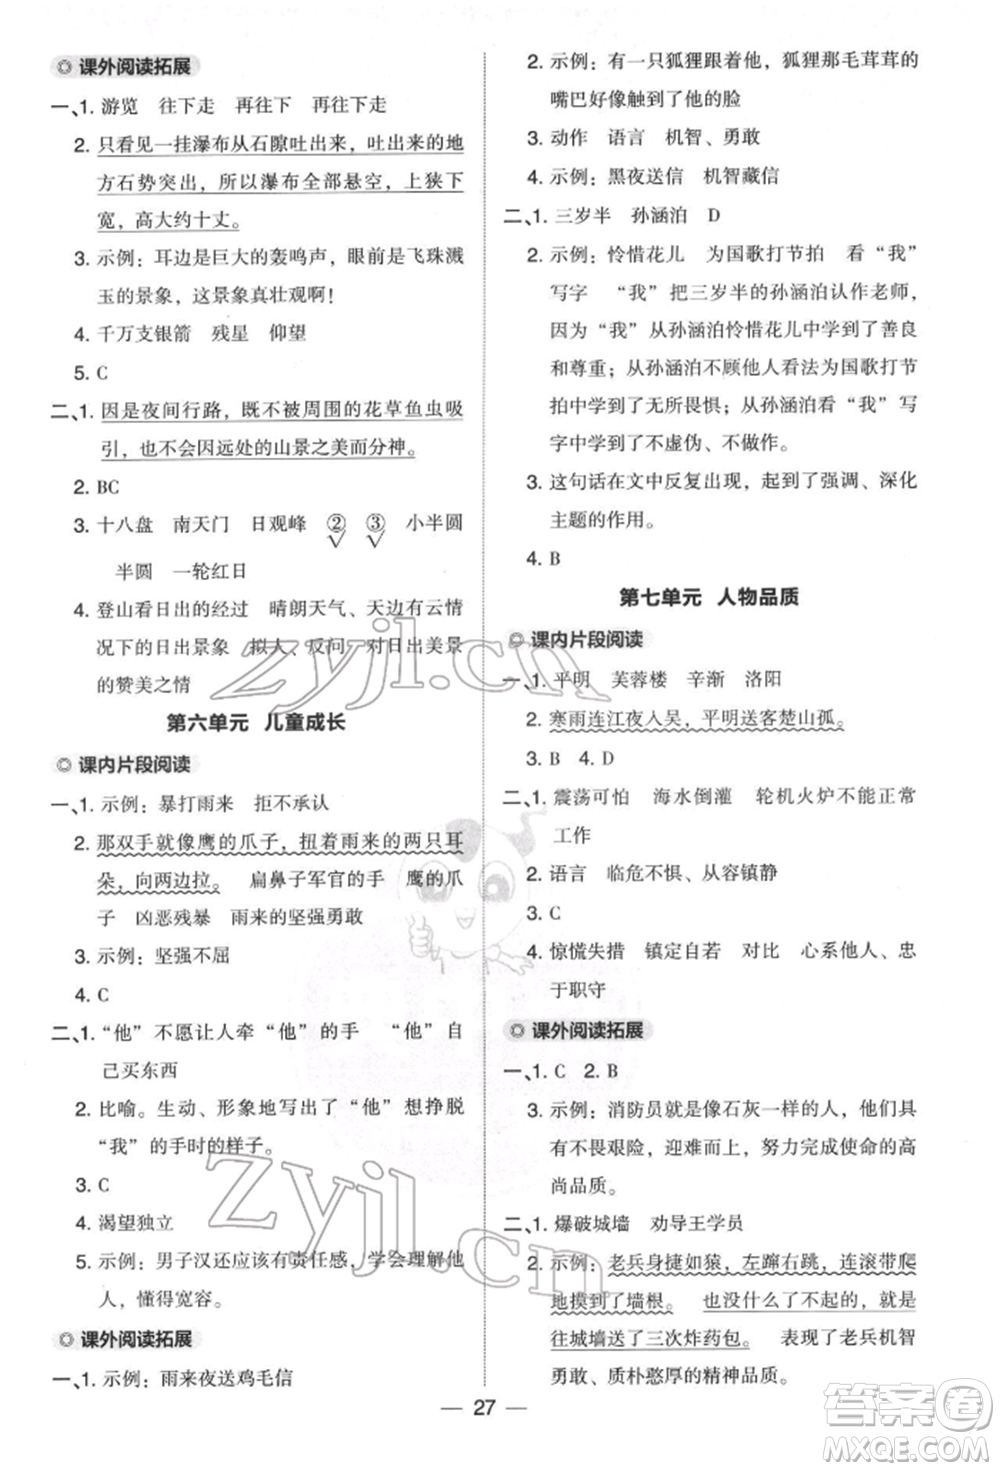 课外阅读拓展
一、1. 游览 往下走 再往下 再往下走
2. 只看见一挂瀑布从石隙吐出来，吐出来的地
方石势突出，所以瀑布全部悬空，上狭下
宽，高大约十丈。
3. 示例：耳边是巨大的轰鸣声，眼前是飞珠溅
玉的景象，这景象真壮观啊！
4. 千万支银箭 残星 仰望
5. C
二、1. 因是夜间行路，既不被周围的花草鱼虫吸
引，也不会因远处的山景之美而分神。
2. BC
3. 十八盘 南天门 日观峰 ② ③ 小半圆
√ √
半圆 一轮红日
4. 登山看日出的经过 晴朗天气、天边有云情
况下的日出景象 拟人、反问 对日出美景
的赞美之情
第六单元 儿童成长
课内片段阅读
一、1. 示例：暴打雨来 拒不承认
2. 那双手就像鹰的爪子，扭着雨来的两只耳
朵，向两边拉。 扁鼻子军官的手 鹰的爪
子 凶恶残暴 雨来的坚强勇敢
3. 示例：坚强不屈
4. C
二、1. “他”不愿让人牵“他”的手 “他”自
己买东西
2. 比喻。生动、形象地写出了“他”想挣脱
“我”的手时的样子。
3. C
4. 渴望独立
5. 示例：男子汉还应该有责任感，学会理解他
人，懂得宽容。
课外阅读拓展
一、1. 示例：雨来夜送鸡毛信
2. 示例：有一只狐狸跟着他，狐狸那毛茸茸的
嘴巴好像触到了他的脸
3. 动作 语言 机智、勇敢
4. 示例：黑夜送信 机智藏信
二、1. 三岁半 孙涵泊 D
2. 示例：怜惜花儿 为国歌打节拍 看“我”
写字 “我”把三岁半的孙涵泊认作老师，
因为“我”从孙涵泊怜惜花儿中学到了善良
和尊重；从孙涵泊不顾他人看法为国歌打节
拍中学到了无所畏惧；从孙涵泊看“我”写
字中学到了不虚伪、不做作。
3. 这句话在文中反复出现，起到了强调、深化
主题的作用。
4. B
第七单元 人物品质
课内片段阅读
一、1. 平明 芙蓉楼 辛渐 洛阳
2. 寒雨连江夜入吴，平明送客楚山孤。
3. B 4. D
二、1. 震荡可怕 海水倒灌 轮机火炉不能正常
工作
2. 语言 临危不惧、从容镇静
3. C
4. 惊慌失措 镇定自若 对比 心系他人、忠
于职守
课外阅读拓展
一、1. C 2. B
3. 示例：消防员就是像石灰一样的人，他们具
有不畏艰险，迎难而上，努力完成使命的高
尚品质。
二、1. 爆破城墙 劝导王学员
2. 示例：老兵身捷如猿，左蹿右跳，连滚带爬
地摸到了墙根。 也没什么了不起的，就是
往城墙送了三次炸药包。 表现了老兵机智
勇敢、质朴憨厚的精神品质
27
zyjl.cn
zyjl.cn
答案圈
MXQE.COM